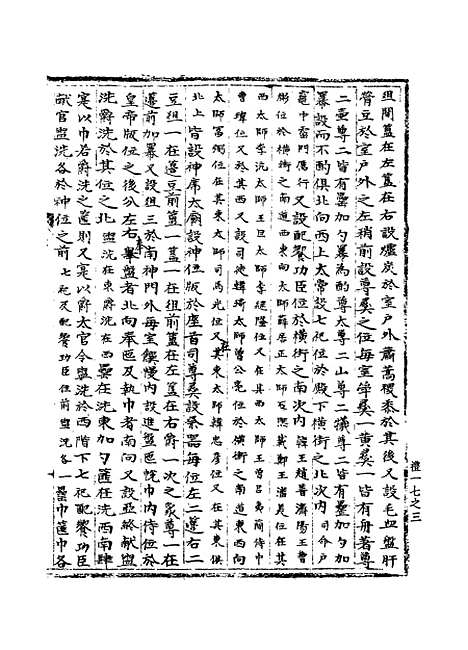 俎間簠在左簋在右設爐炭於室戶外蕭蒿稷黍於其後又設毛血盤肝
膋豆於室戶外之左稍前設尊彝之位每室斝彝一黃彝一皆有舟著尊
二壷尊二皆有罍加勺冪為酌尊太尊二山尊二犧尊二皆有罍加勺加
冪設而不酌俱北向西上太常設七祀位於殿下橫街之北次內司命戶
竈中霤門厲行又設配饗功臣位於橫街之南次內韓王趙普濟陽王曹
彬位於橫街之南道西東向太師薛居正太師石熙載鄭王潘美位在其
西太師李沆太師王旦太師李繼隆位又在其西太師王曾呂夷簡侍中
曹瑋位又於其西又設司徒韓琦太師曾公亮位於橫街之南道東西向
太師富弼位在其東太師司馬光位又其東太師韓忠彥位又在其東俱
北上皆設神席太廟設神位版於座首司尊彝設祭器每位左二籩右二
豆俎一在籩豆前簠一簋一在俎前簠在左簋在右爵一次之象尊一在
籩前加冪又設俎三於南神門外每室饌幔內設進盤匜帨巾內侍位於
皇帝版位之後分左右奉盤者北向奉匜及執巾者南向又設亞終獻盥
洗爵洗於其位之北盥洗在東爵洗在西罍在洗東加勺篚在洗西南肆
寔以巾若爵洗之篚則又寔以爵太官令盥洗於西階下七祀配饗功臣
獻官盥洗各於神位之前七祀及配饗功臣位前盥洗各一罍巾篚巾各
禮一七之三